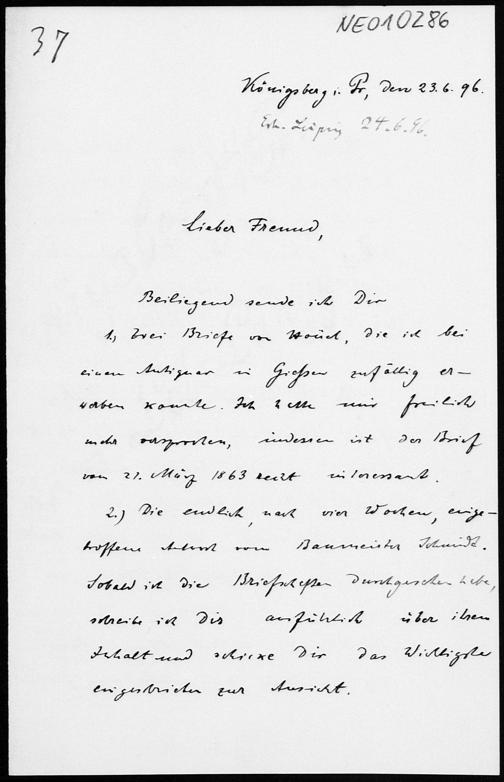 37
NEO10286
Königsberg i. Pr, den 23.6.96.
Erh. Leipzig 24.6.96.
Lieber Freund,
Beiliegend sende ich Dir
1.) Drei Briefe von Hoüel, die ich bei
einem Antiquar in Gießen zufällig er-
werben konnte. Ich hatte mir freilich
mehr versprochen, indessen ist der Brief
vom 21. März 1863 recht interessant.
2.) Die endlich, nach vier Wochen, einge-
troffene Antwort vom Baumeister Schmidt.
Sobald ich die Briefschaften durchgesehen habe,
schreibe ich Dir ausführlich über ihren
Inhalt und schicke Dir das Wichtigste
eingeschrieben zur Ansicht.